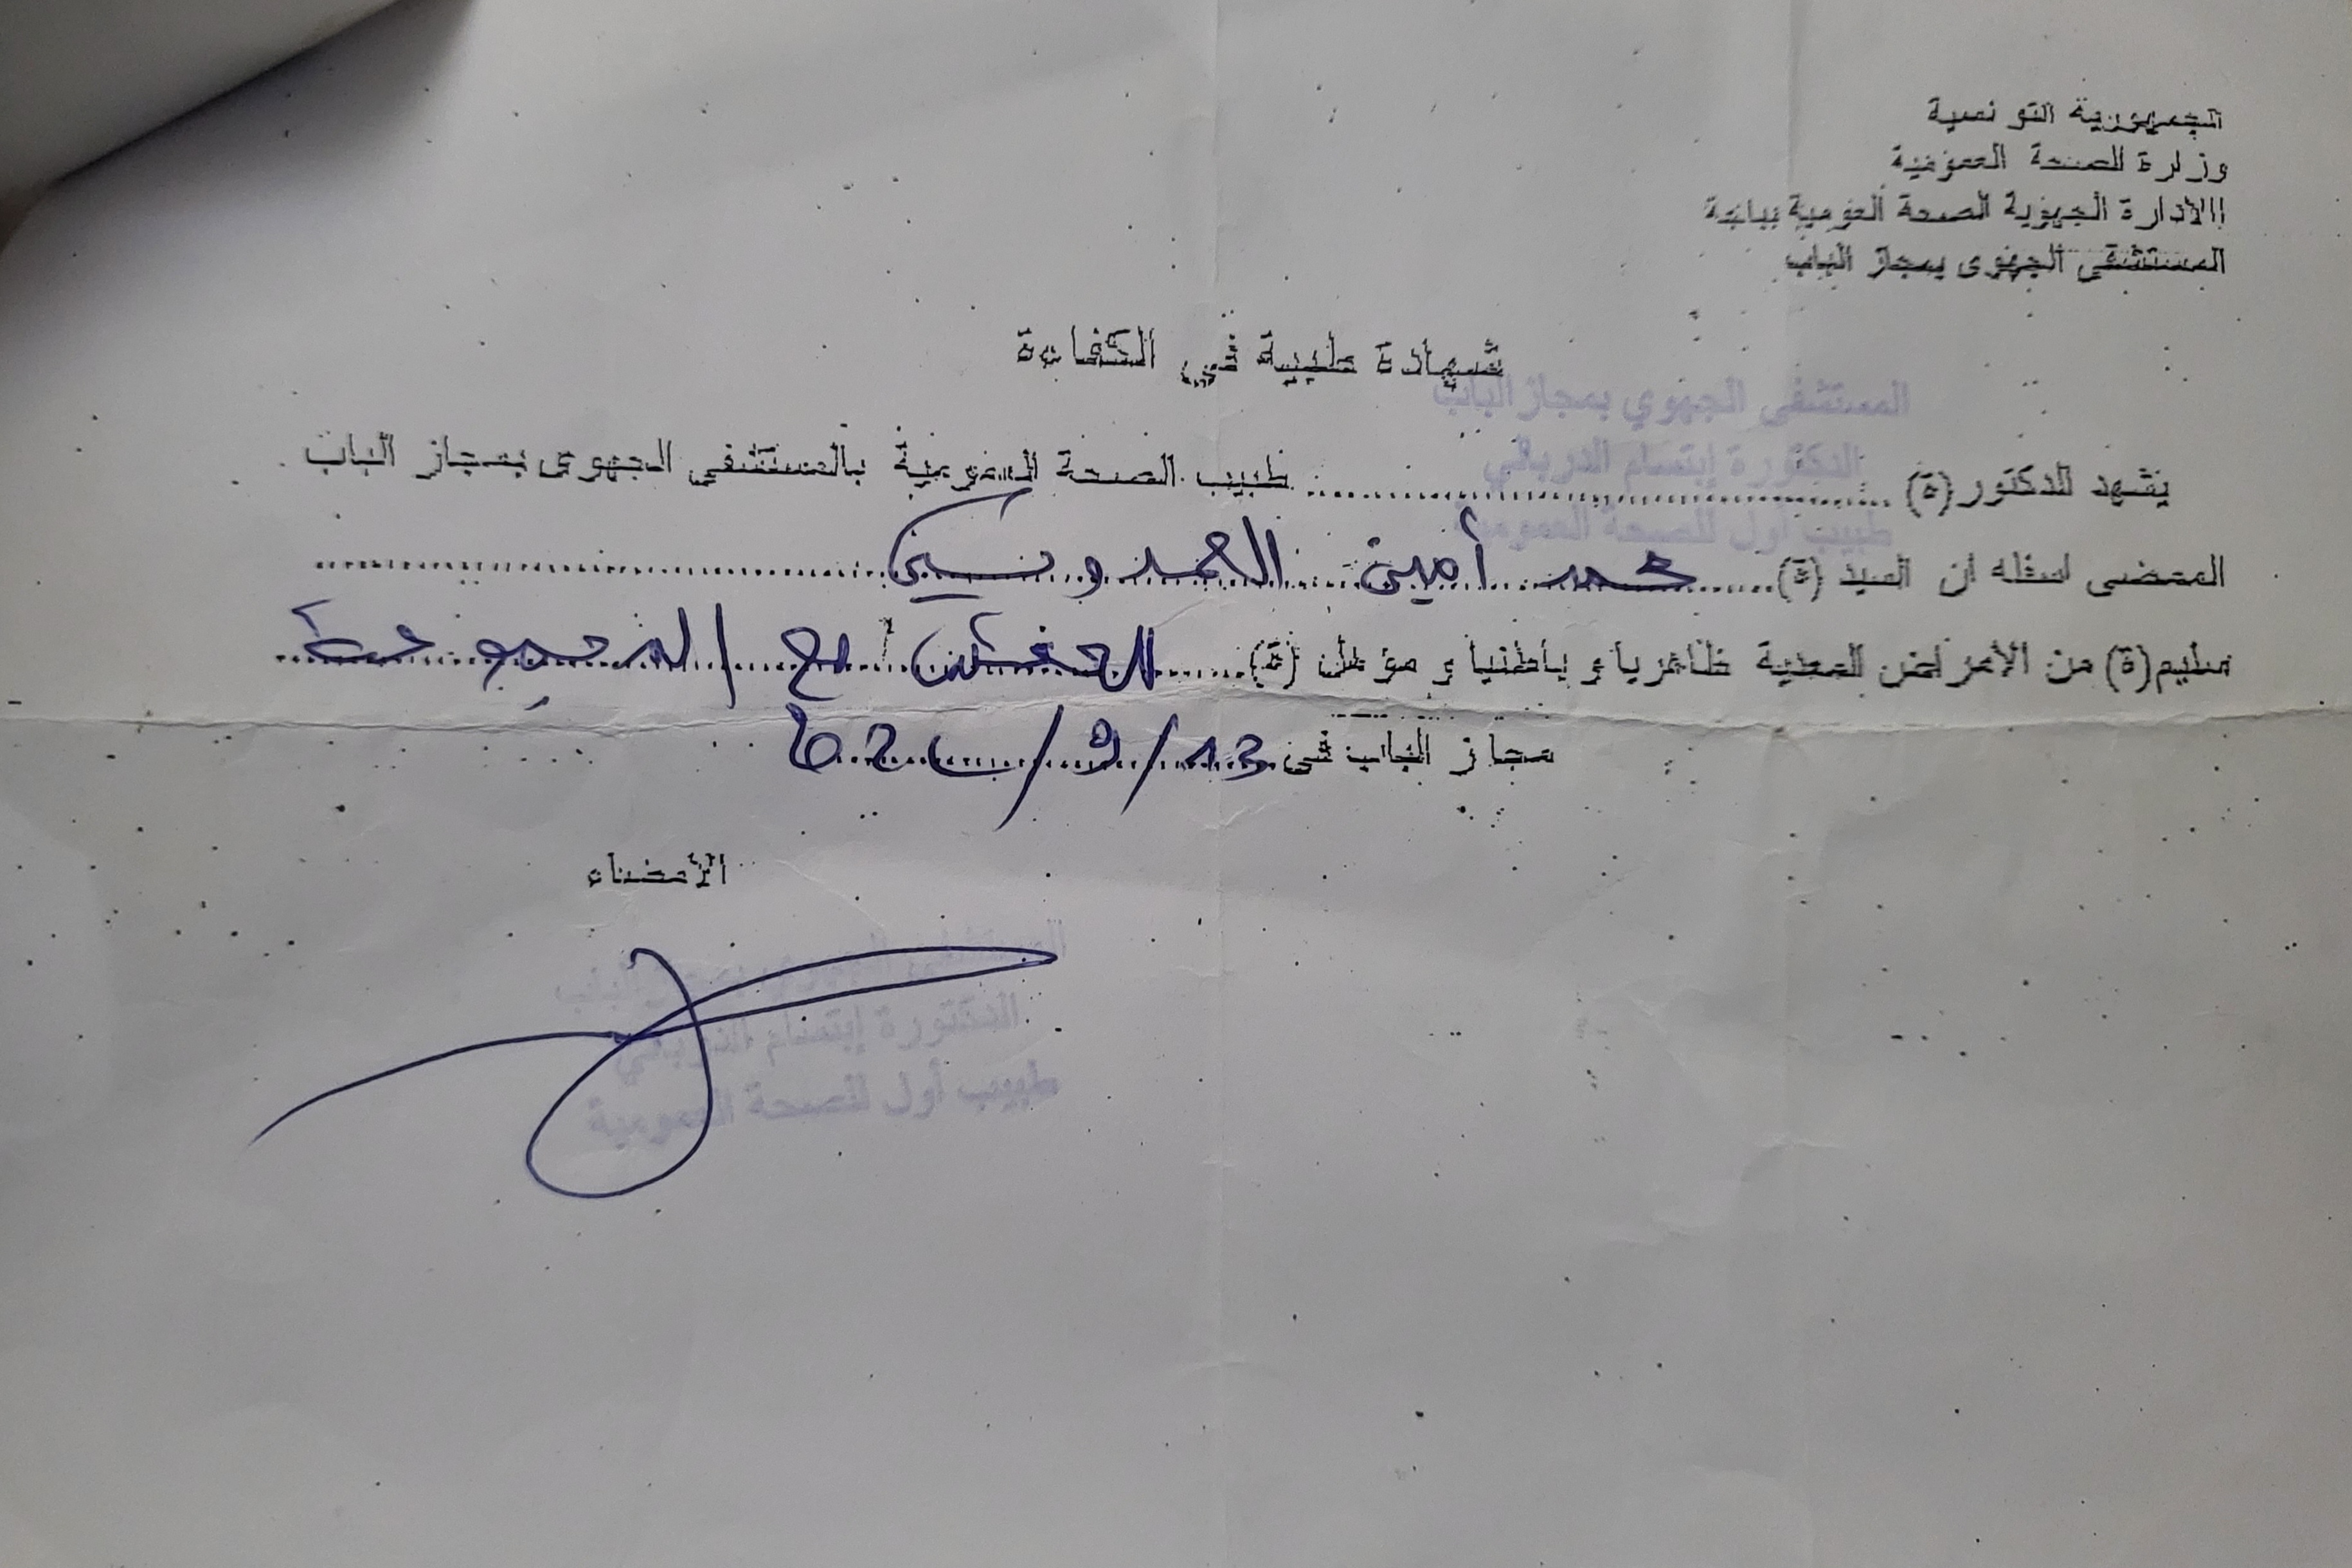 الجمهورية التونسية
وزارة الصحة العمومية
الادارة الجهوية للصحة العمومية بباجة
المستشفى الجهوى بمجاز الباب
شهادة طبية في الكفاءة
المستشفى الجهوي بمجاز الباب
الدكتورة إبتسام الدريدي
طبيب أول للصحة العمومية
يشهد الدكتور (ة) طبيب الصحة العمومية بالمستشفى الجهوى بمجاز الباب
الممضى اسفله ان السيد (ة) محمد أمين الحمدوني
سليم (ة) من الأمراض المعدية ظاهريا و باطنيا و مؤهل (ة)
مجاز الباب في 13/9/
الأمضاء
المستشفى الجهوي بمجاز الباب
الدكتورة إبتسام الدريدي
طبيب أول للصحة العمومية